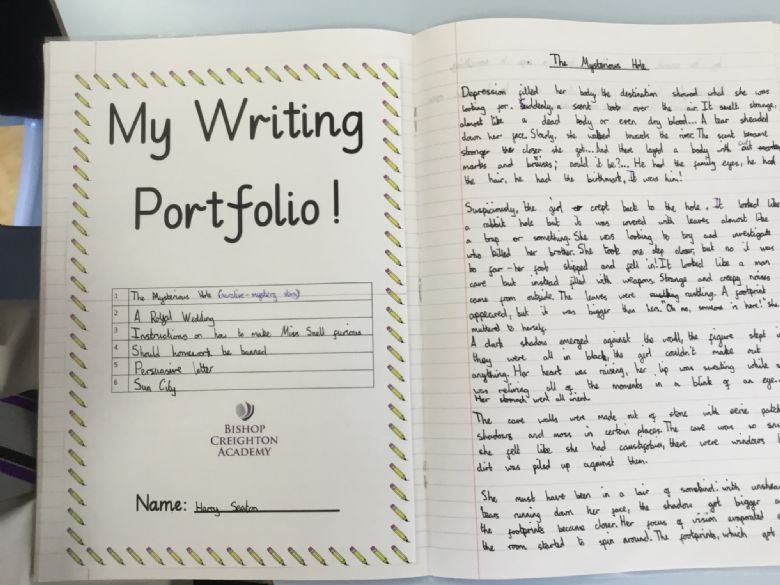 My Writing
Portfolio!
1 The Mysterious Hole (narrative-mystery story)
2 A Royal Wedding
3 Instructions on how to make Miss Snell furious
4 Should homework be banned
5 Persuasive letter
6 Sun City
BISHOP
CREIGHTON
ACADEMY
Name: Harry Seaton
The Mysterious Hole
Depression filled her body the destination showed what she was
looking for. Suddenly, a scent bobs over the air. It smelt strange,
almost like a dead body or even dry blood... A tear sheaded
down her face. Slowly, she walked towards the river. The scent became
stronger the closer she got... And there layed a body with cut
marks and bruises; could it be?... He had the family eyes, he had
the hair, he had the birthmark, It was him!
Suspiciously, the girl crept back to the hole. It looked like
a rabbit hole but it was covered with leaves almost like
a trap or something. She was looking to try and investigate
who killed her brother. She took one step closer, but no it was
to far - her foot slipped and fell in! It looked like a man
cave but instead filled with weapons. Strange and creepy noises
came from outside. The leaves were rustling. A footprint
appeared, but it was bigger than hers. "Oh no, someone is here!" she
muttered to herself.
A dark shadow emerged against the wall, the figure stept
they were all in black, the girl couldn't make out
anything. Her heart was raising, her lip was sweating while
was reliving all of the moments in a blink of an eye.
Her stomach went all weird.
The cave walls were made out of stone with eerie
shadows and moss in certain places. The cave was so
she felt like she had claustrophobia, there were windows
dirt was piled up against them.
She must have been in a lair of somekind. With
tears running down her face, the shadow got bigger
the footprints became closer. Her focus of vision evaporated
the room started to spin around. The footprints, which got